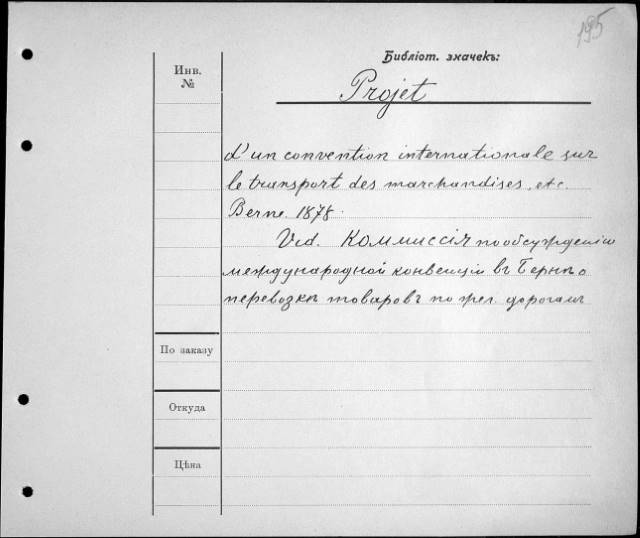 195
Библіот. значекъ:
Инв.
№
Projet
d'un convention internationale sur
le transport des marchandises, etc.
Berne. 1878.
Vid. Коммиссія по обсужденію
международной конвенціи въ Бернѣ о
перевозкѣ товаровъ по жел. дорогамъ
По заказу
Откуда
Цѣна